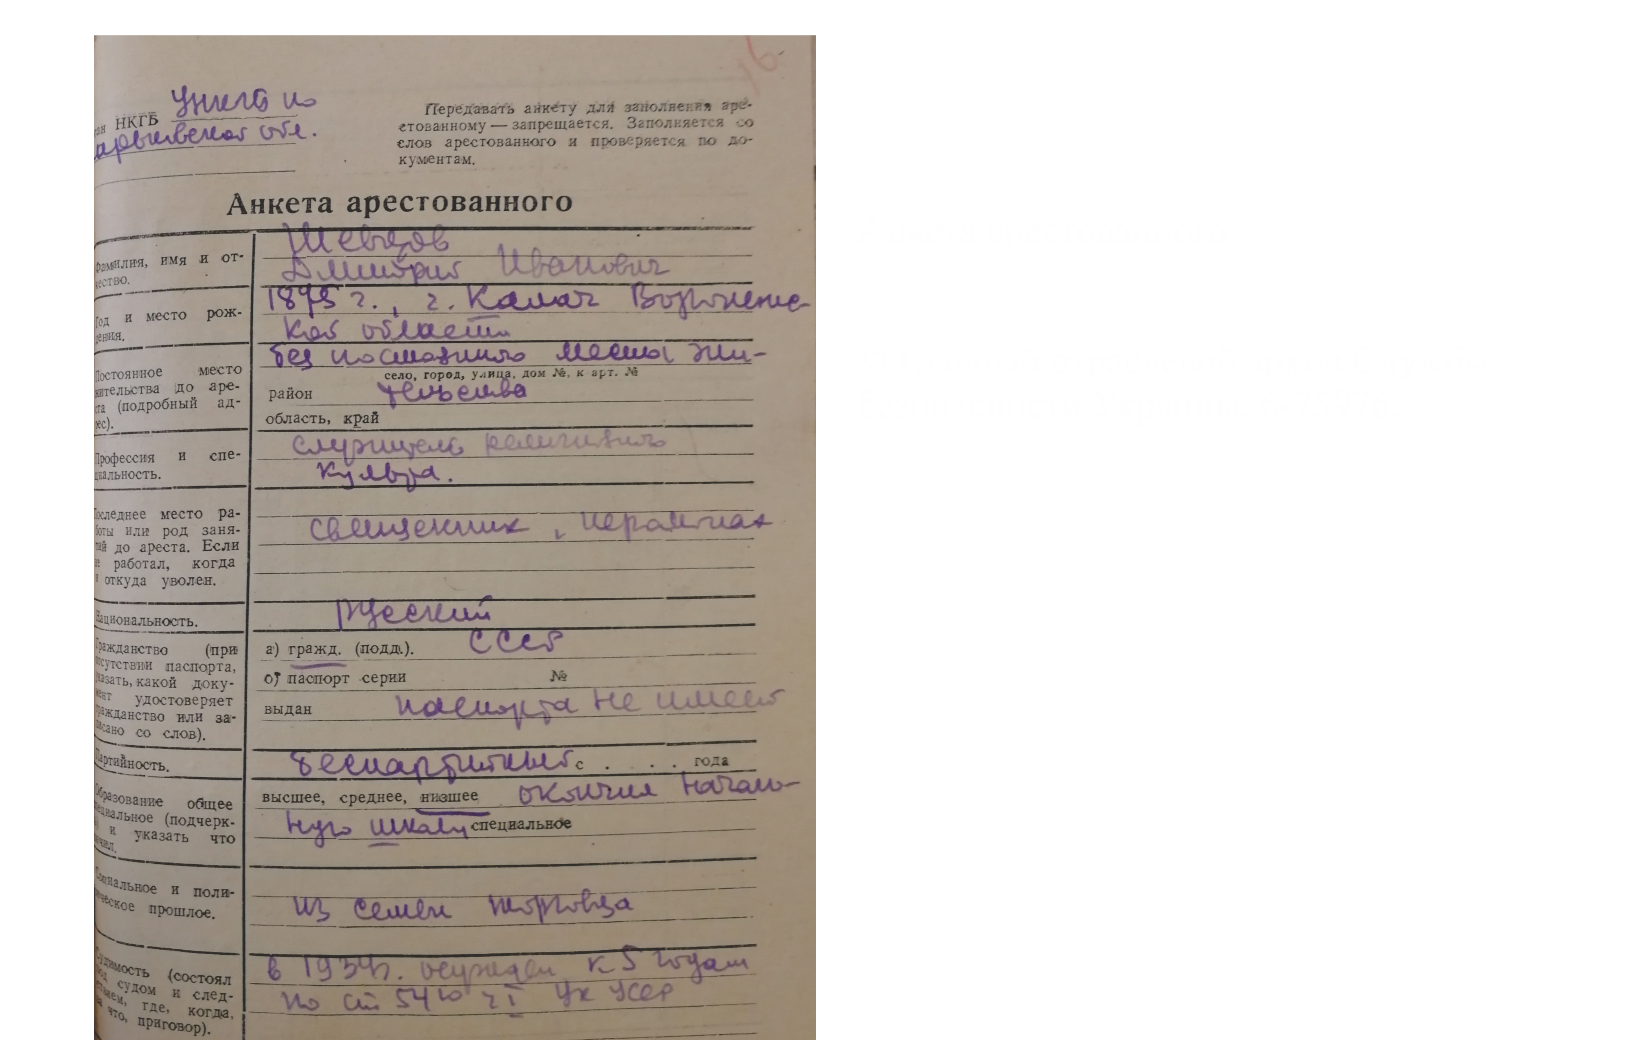 16
НКГБ УНКГБ по
Харьковской обл.
Передавать анкету для заполнения аре-
стованному — запрещается. Заполняется со
слов арестованного и проверяется по до-
кументам.
Анкета арестованного
Фамилия, имя и от-
чество.
Шевцов
Дмитрий Иванович
Год и место рож-
дения.
1895 г., г. Калач Воронежс-
кой области
Постоянное место
жительства до аре-
ста (подробный ад-
рес).
без постоянного места жи-
село, город, улица, дом №, к арт. №
район тельства
область, край
Профессия и спе-
циальность.
служитель религиозного
культа.
Последнее место ра-
боты или род заня-
тий до ареста. Если
не работал, когда
и откуда уволен.
священник, иеромонах
Национальность.
русский
Гражданство (при
отсутствии паспорта,
указать, какой доку-
мент удостоверяет
гражданство или за-
писано со слов).
а) гражд. (подд.). СССР
б) паспорт серии №
выдан паспорта не имеет
Партийность.
беспартийный с . . . . года
Образование общее
специальное (подчерк-
и указать что
высшее, среднее, низшее окончил началь-
ную школу специальное
Социальное и поли-
тическое прошлое.
из семьи торговца
Судимость (состоял
под судом и след-
ствием, где, когда,
за что, приговор).
в 1934 г. осужден к 5 годам
по ст 54-10 ч I УК УССР